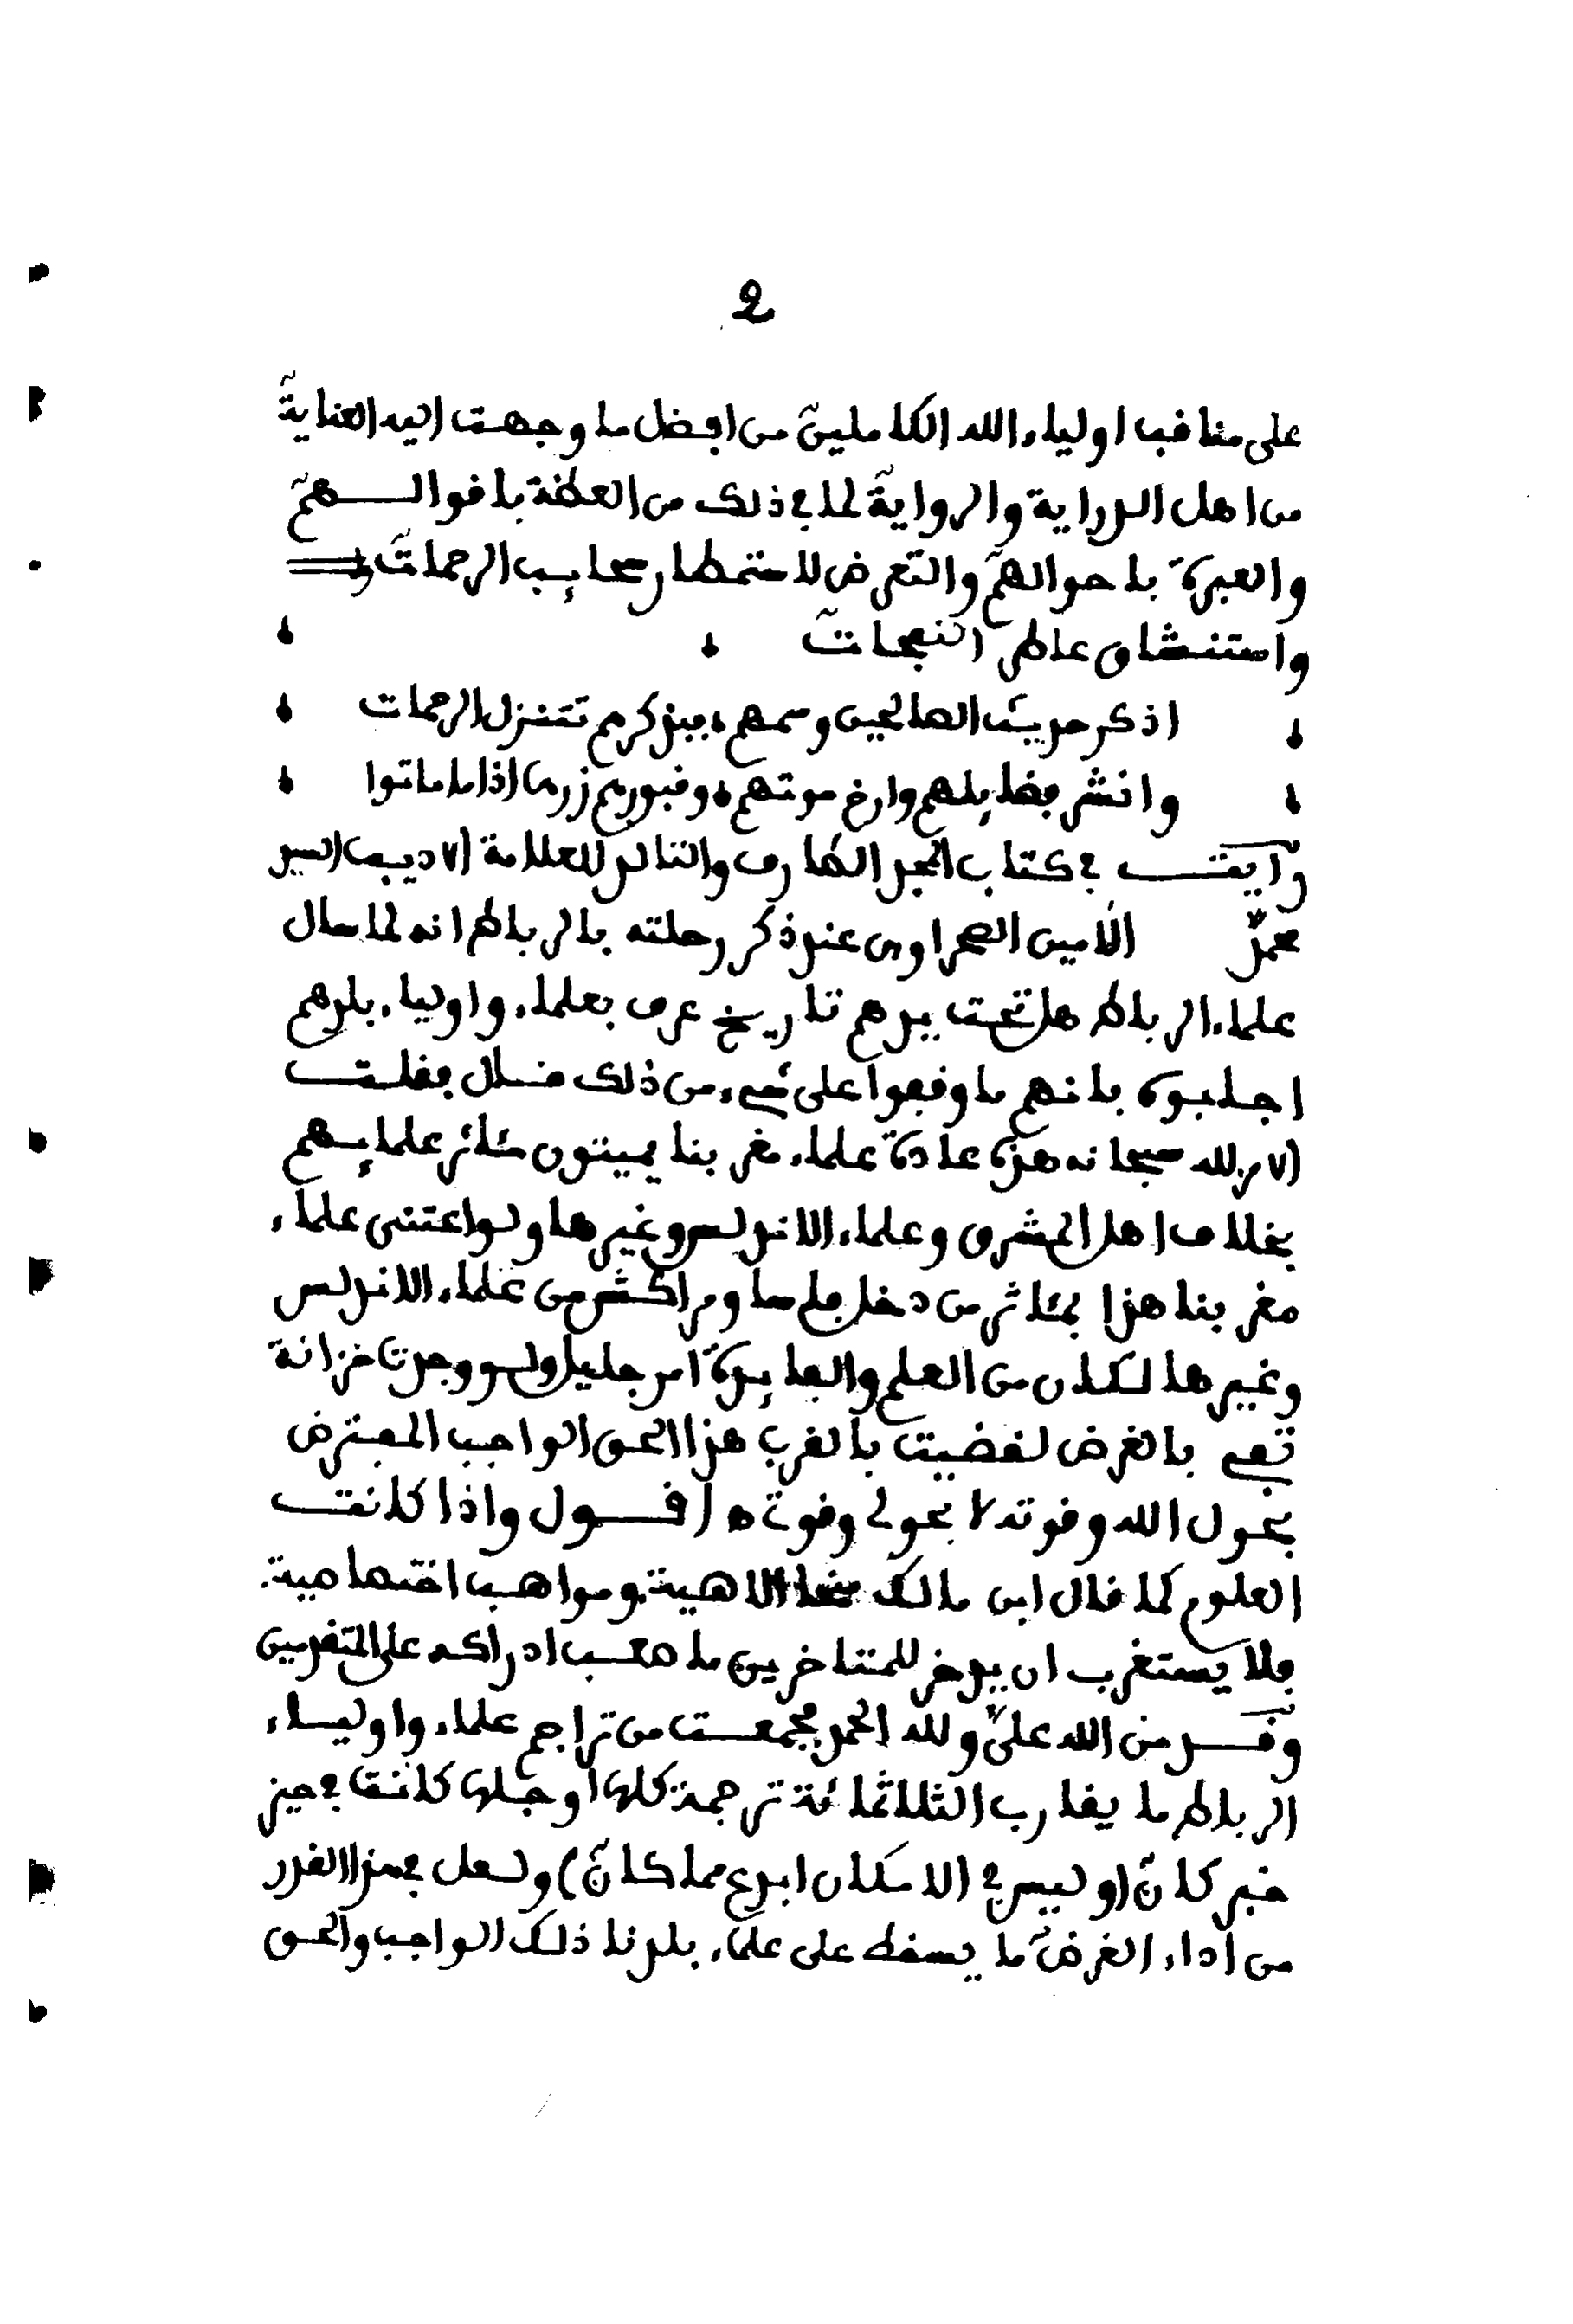 2
على مناقب اولياء الله الكاملين من افضل ما وجهت اليه العناية
من اهل الدراية والرواية لما في ذلك من العظة باقوالهم
والعبرة باحوالهم والتعرض لاستمطار سحايب الرحمات
واستنشاق عاطر النفحات
اذكر حديث الصالحين وسمهم فبذكرهم تتنزل الرحمات
وانشر فضايلهم وارخ موتهم وقبورهم زرها اذا ما ماتوا
رايت في كتاب المجد الطارف والتالد للعلامة الاديب السيد
محمد الامين الصحراوي عند ذكر رحلته بالرباط انه لما سال
علماء الرباط هل تحت يدهم تاريخ عرف بعلماء واولياء بلدهم
اجابوه بانهم ما وقفوا على شيء من ذلك قال فقلت
الامر لله سبحانه هذه عادة علماء مغربنا يميتون مئاثر علمايهم
بخلاف اهل المشرق وعلماء الاندلس وغيرها ولو اعتنى علماء
مغربنا هذا بمئاثر من دخل فاسا ومراكش من علماء الاندلس
وغيرها لكان من العلم والفايدة امر جليل ولو وجدت خزانة
تفي بالغرض لقضيت بالغرب هذا الحق الواجب المفترض
بحول الله وقوته لا بحولي وقوتي ه اقول واذا كانت
العلوم كما قال ابن مالك منحا الاهية ومواهب اختصاصية
فلا يستغرب ان يدخر للمتاخرين ما صعب ادراكه على المتقدمين
وقد من الله علي ولله الحمد فجمعت من تراجم علماء واولياء
الرباط ما يقارب الثلاثمائة ترجمة كلها او جلها كانت في حيز
خبر كان (وليس في الامكان ابدع مما كان) ولعل في هذا القدر
من اداء الغرض ما يسقط على علماء بلدنا ذلك الواجب والحق